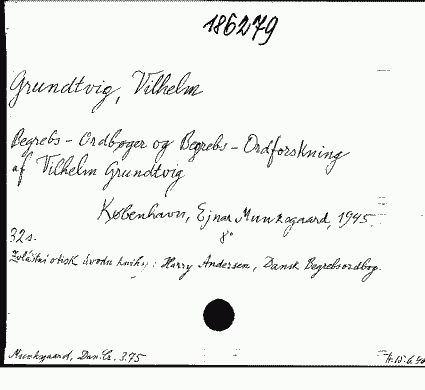 186279
Grundtvig, Vilhelm
Begrebs - Ordbøger og Begrebs - Ordforskning
af Vilhelm Grundtvig
København, Ejnar Munksgaard, 1945.
32 s. 8°
Zvláštní otisk úvodu knihy: Harry Andersen, Dansk Begrebsordbog.
Munksgaard, Dan. Cr. 3.75